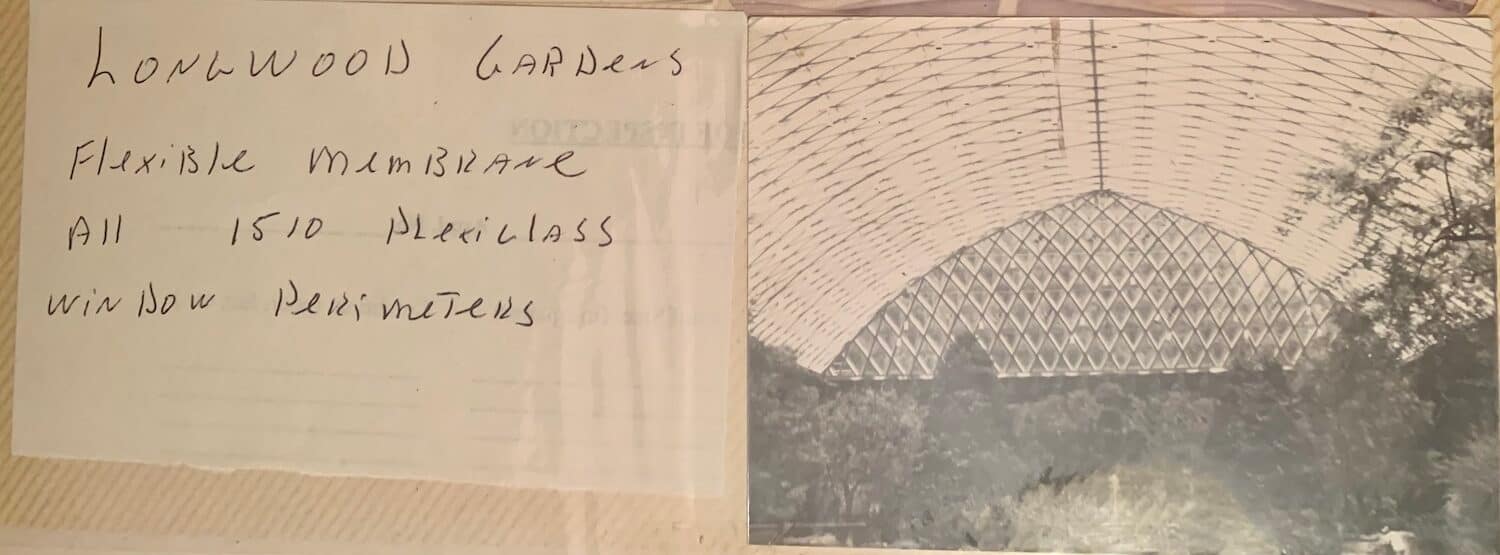 LONGWOOD GARDENS
OF INSPECTION
Flexible MEMBRANE
All 1510 PLEXIGLASS
WINDOW PERIMETERS